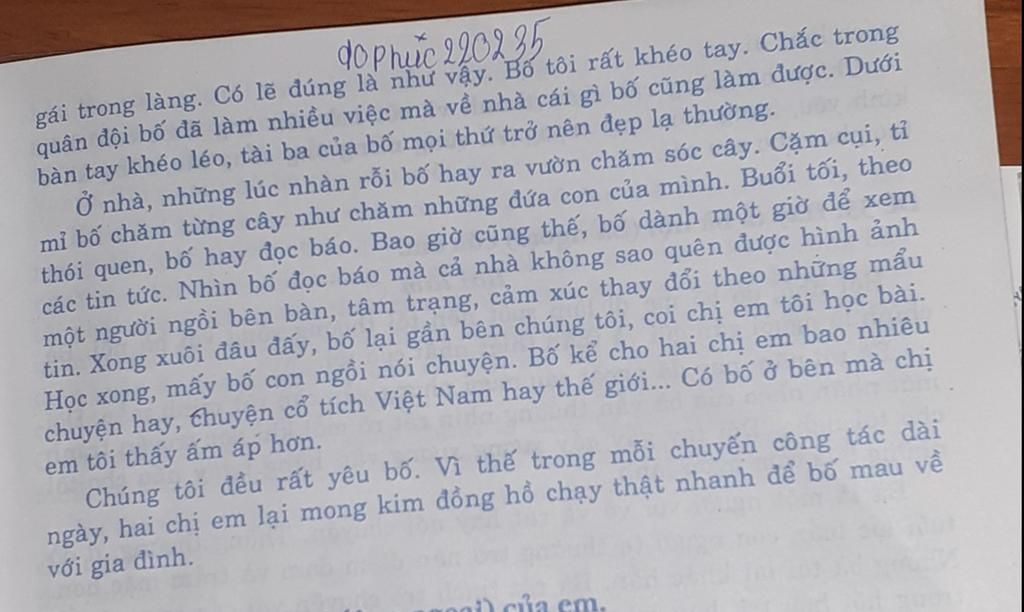 dophuc220235
gái trong làng. Có lẽ đúng là như vậy. Bố tôi rất khéo tay. Chắc trong
quân đội bố đã làm nhiều việc mà về nhà cái gì bố cũng làm được. Dưới
bàn tay khéo léo, tài ba của bố mọi thứ trở nên đẹp lạ thường.
Ở nhà, những lúc nhàn rỗi bố hay ra vườn chăm sóc cây. Cặm cụi, tỉ
mỉ bố chăm từng cây như chăm những đứa con của mình. Buổi tối, theo
thói quen, bố hay đọc báo. Bao giờ cũng thế, bố dành một giờ để xem
các tin tức. Nhìn bố đọc báo mà cả nhà không sao quên được hình ảnh
một người ngồi bên bàn, tâm trạng, cảm xúc thay đổi theo những mẩu
tin. Xong xuôi đâu đấy, bố lại gần bên chúng tôi, coi chị em tôi học bài.
Học xong, mấy bố con ngồi nói chuyện. Bố kể cho hai chị em bao nhiêu
chuyện hay, chuyện cổ tích Việt Nam hay thế giới... Có bố ở bên mà chị
em tôi thấy ấm áp hơn.
Chúng tôi đều rất yêu bố. Vì thế trong mỗi chuyến công tác dài
ngày, hai chị em lại mong kim đồng hồ chạy thật nhanh để bố mau về
với gia đình.
ngoại) của em.